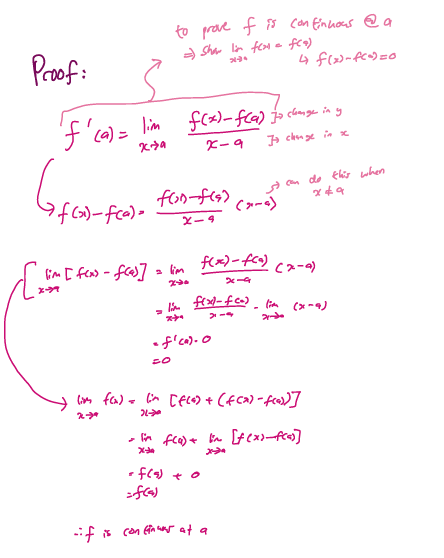 to prove f is continuous @ a
⇒ show lim x→a f(x) = f(a)
↳ f(x)-f(a)=0
Proof:
f'(a) = lim x→a (f(x)-f(a))/(x-a)
→ change in y
→ change in x
f(x)-f(a) = (f(x)-f(a))/(x-a) (x-a)
→ can do this when
x ≠ a
lim x→a [f(x)-f(a)] = lim x→a (f(x)-f(a))/(x-a) (x-a)
= lim x→a (f(x)-f(a))/(x-a) · lim x→a (x-a)
= f'(a)·0
=0
lim x→a f(x) = lim x→a [f(a) + (f(x)-f(a))]
= lim x→a f(a) + lim x→a [f(x)-f(a)]
= f(a) + 0
=f(a)
∴ f is continuous at a